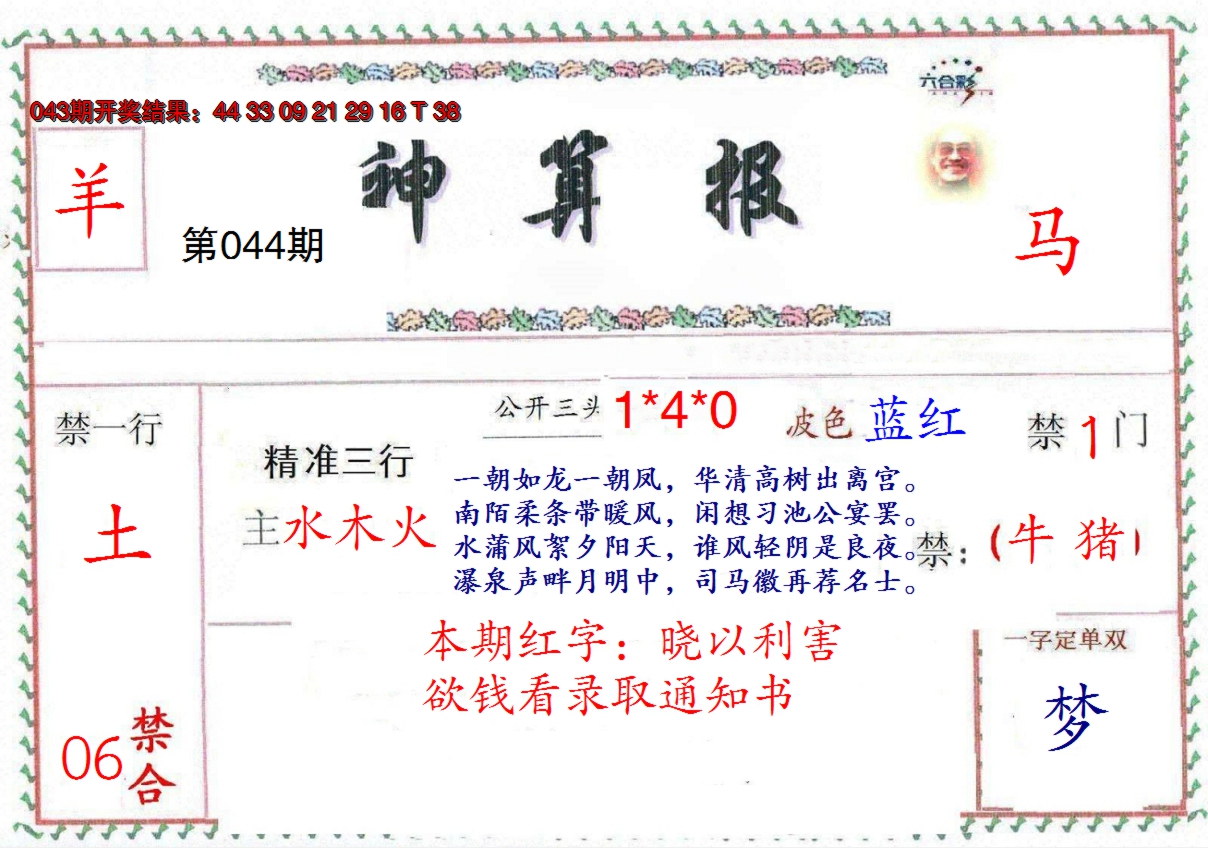 六合彩
043期开奖结果：44 33 09 21 29 16 T 38
神算报
羊
第044期
马
禁一行
土
06
禁合
精准三行
主水木火
公开三头 1*4*0
波色 蓝红
禁1门
一朝如龙一朝凤，华清高树出离宫。
南陌柔条带暖风，闲想习池公宴罢。
水蒲风絮夕阳天，谁风轻阴是良夜。
瀑泉声畔月明中，司马徽再荐名士。
禁：（牛 猪）
本期红字：晓以利害
欲钱看录取通知书
一字定单双
梦